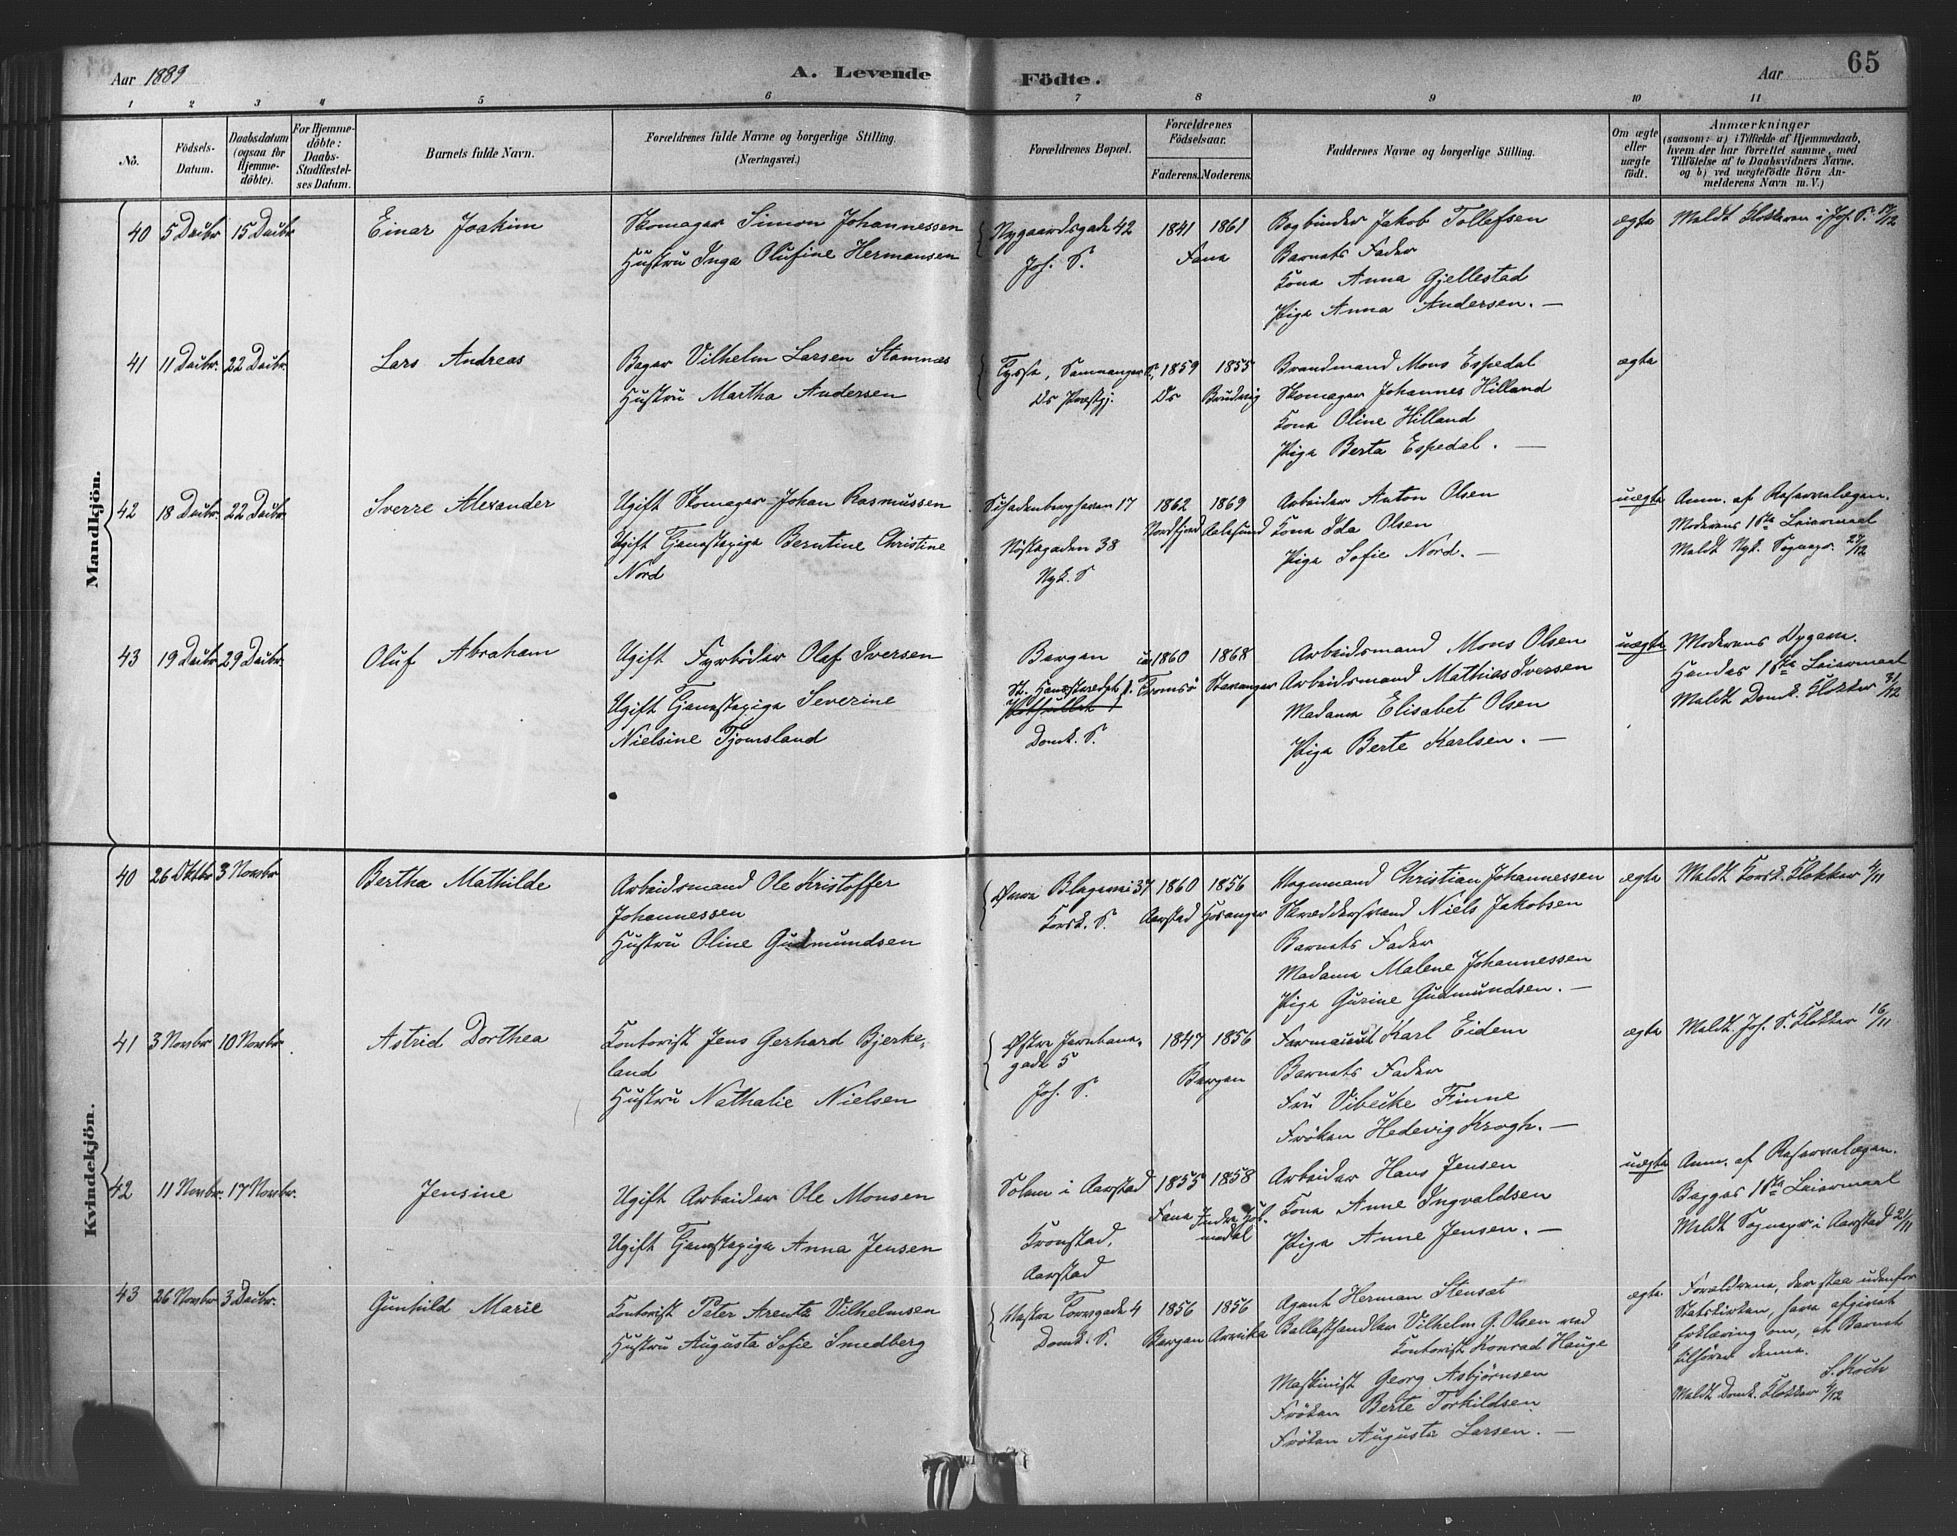 Aar 1889
A. Levende
Födte.
Aar
65
1 2 3 4 5 6 7 8 9 10 11
No.
Födsels-Datum.
Daabsdatum (ogsaa for Hjemme-döbte).
For Hjemme-döbte: Daabs-Stadfæstel-ses Datum.
Barnets fulde Navn.
Forældrenes fulde Navne og borgerlige Stilling.
(Næringsvei.)
Forældrenes Bopæl.
Forældrenes Födselsaar.
Faderens. Moderens.
Faddernes Navne og borgerlige Stilling.
Om ægte eller uægte födt.
Anmærkninger
(saasom: a) i Tilfælde af Hjemmedaab,
hvem der har forrettet samme, med
Tilföielse af to Daabsvidners Navne.
og b) ved uægtefödte Börn An-
melderens Navn m. V.)
Mandkjön.
40 5 Decbr 15 Decbr
Einar Joakim
Skomager Simon Johannessen
Hustru Inga Olufine Hermansen
Nygaardsgade 42
Joh. S.
1841 1861
Fana
Bogbinder Jakob Tollefsen
Barnets Fader
Kona Anna Gjellestad
Pige Anna Andersen. —
ægte
Meldt Klokkeren i Joh. S. 17/12
41 11 Decbr. 22 Decbr.
Lars Andreas
Bager Vilhelm Larsen Stamnæs
Hustru Martha Andersen
Tysse, Samnanger S,
Os Prestgj.
1859 1855
Os Bruvig
Brandmand Mons Espedal
Skomager Johannes Hilland
Kona Oline Hilland
Pige Berta Espedal. —
ægte
42 18 Decbr. 22 Decbr.
Sverre Alexander
Ugift Skomager Johan Rasmussen
Ugift Tjenestepige Berntine Christine
Nord
17
Nöstegaden 38
Nyk. S
1862 1869
Nordfjord Aalesund
Arbeider Anton Olsen
Kona Ida Olsen
Pige Sofie Nord. —
uægte
Anm. af Reservelægen.
Moderens 1ste Leiermaal
Meldt Nyk. Sognepr. 27/12
43 19 Decbr. 29 Decbr.
Oluf Abraham
Ugift Fyrböder Olaf Iversen
Ugift Tjenestepige Severine
Nielsine Tjomsland
Bergen
Domk. S.
1860 1868
Tromsö Stavanger
Arbeidsmand Mons Olsen
Arbeidsmand Mathias Iversen
Madame Elisabet Olsen
Pige Berte Karlsen. —
uægte
Moderens
Hendes 1ste Leiermaal
Meldt Domk. Klokker 31/12
Kvindekjön.
40 26 Oktbr 3 Novbr
Bertha Mathilde
Arbeidsmand Ole Kristoffer
Johannessen
Hustru Oline Gudmundsen
Övre Blegevei 37
Korsk. S.
1860 1856
Aarstad Hosanger
Vognmand Christian Johannessen
Skræddersvend Niels Jakobsen
Barnets Fader
Madame Malene Johannessen
Pige Gurine Gudmundsen. —
ægte
Meldt Korsk. Klokker 4/11
41 3 Novbr 10 Novbr.
Astrid Dorthea
Kontorist Jens Gerhard Bjerke-
land
Hustru Nathalie Nielsen
Östre Jernbane-
gade 5
Joh. S.
1847 1856
Bergen
Farmaceut Karl Eidem
Barnets Fader
Fru Vibeike Finne
Fröken Hedevig Krogh. —
ægte
Meldt Joh. S. Klokker 16/11
42 11 Novbr. 17 Novbr.
Jensine
Ugift Arbeider Ole Monsen
Ugift Tjenestepige Anna Jensen
Solem i Aarstad
Kronstad,
Aarstad
1855 1858
Fana Indre Hol-
medal
Arbeider Hans Jensen
Kona Anne Ingvaldsen
Pige Anne Jensen. —
uægte
Anm. af Reservelægen.
Begges 1ste Leiermaal
Meldt Sognepr i Aarstad 21/11
43 26 Novbr 3 Decbr.
Gunhild Marie
Kontorist Peter Arentz Vilhelmsen
Hustru Augusta Sofie Smedberg
Vestre Torvgade 4
Domk. S.
1856 1856
Bergen Arvika
Agent Herman Stensat
Ballasthandler Vilhelm G. Olsen ved
Kontorist Konrad Hauge
Maskinist Georg Asbjörnsen
Fröken Berte Torkildsen
Fröken Augusta Larsen. —
ægte
Forældrene, der staa udenfor
Statskirken, have afgivet
Erklæring om, at Barnet
tilhörer denne.
S. Koch
Meldt Domk. Klokker 4/12